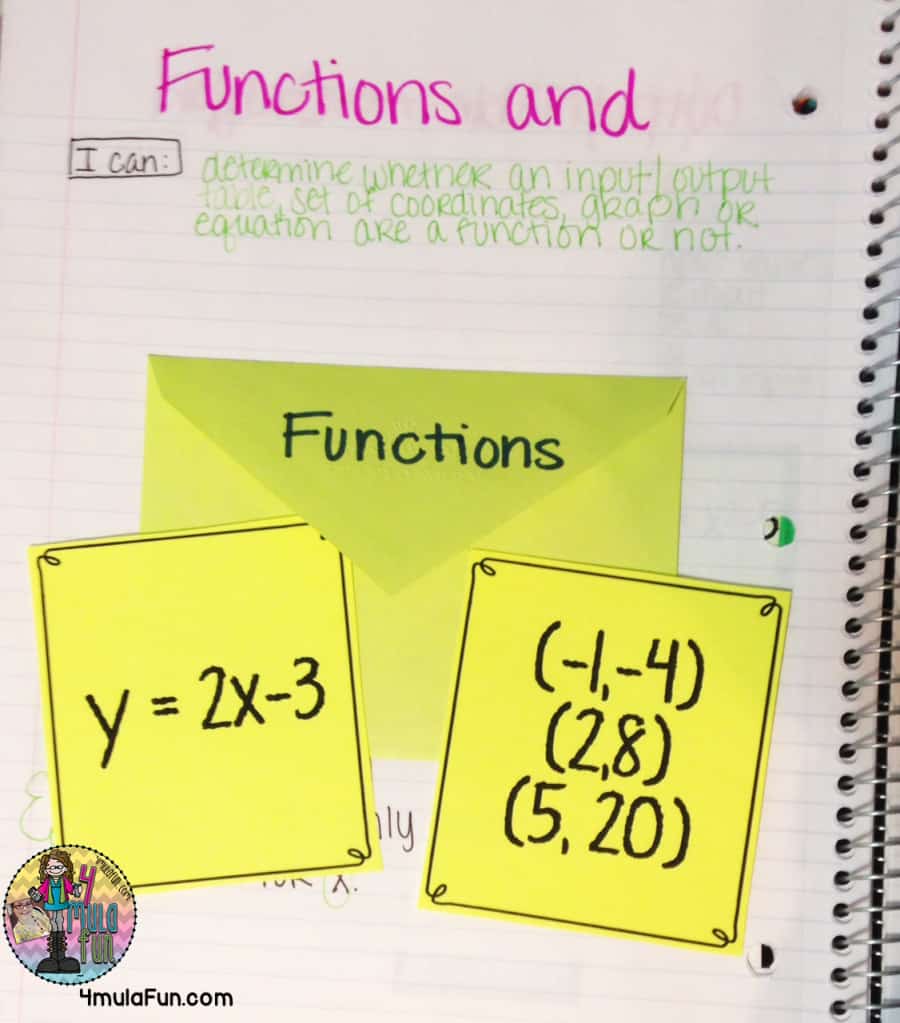 Functions and
I can:
determine whether an input/output
table, set of coordinates, graph OR
equation are a function OR not.
Functions
y = 2x-3
(-1,-4)
(2,8)
(5, 20)
x.
4
Mula
fun
4mulaFun.com